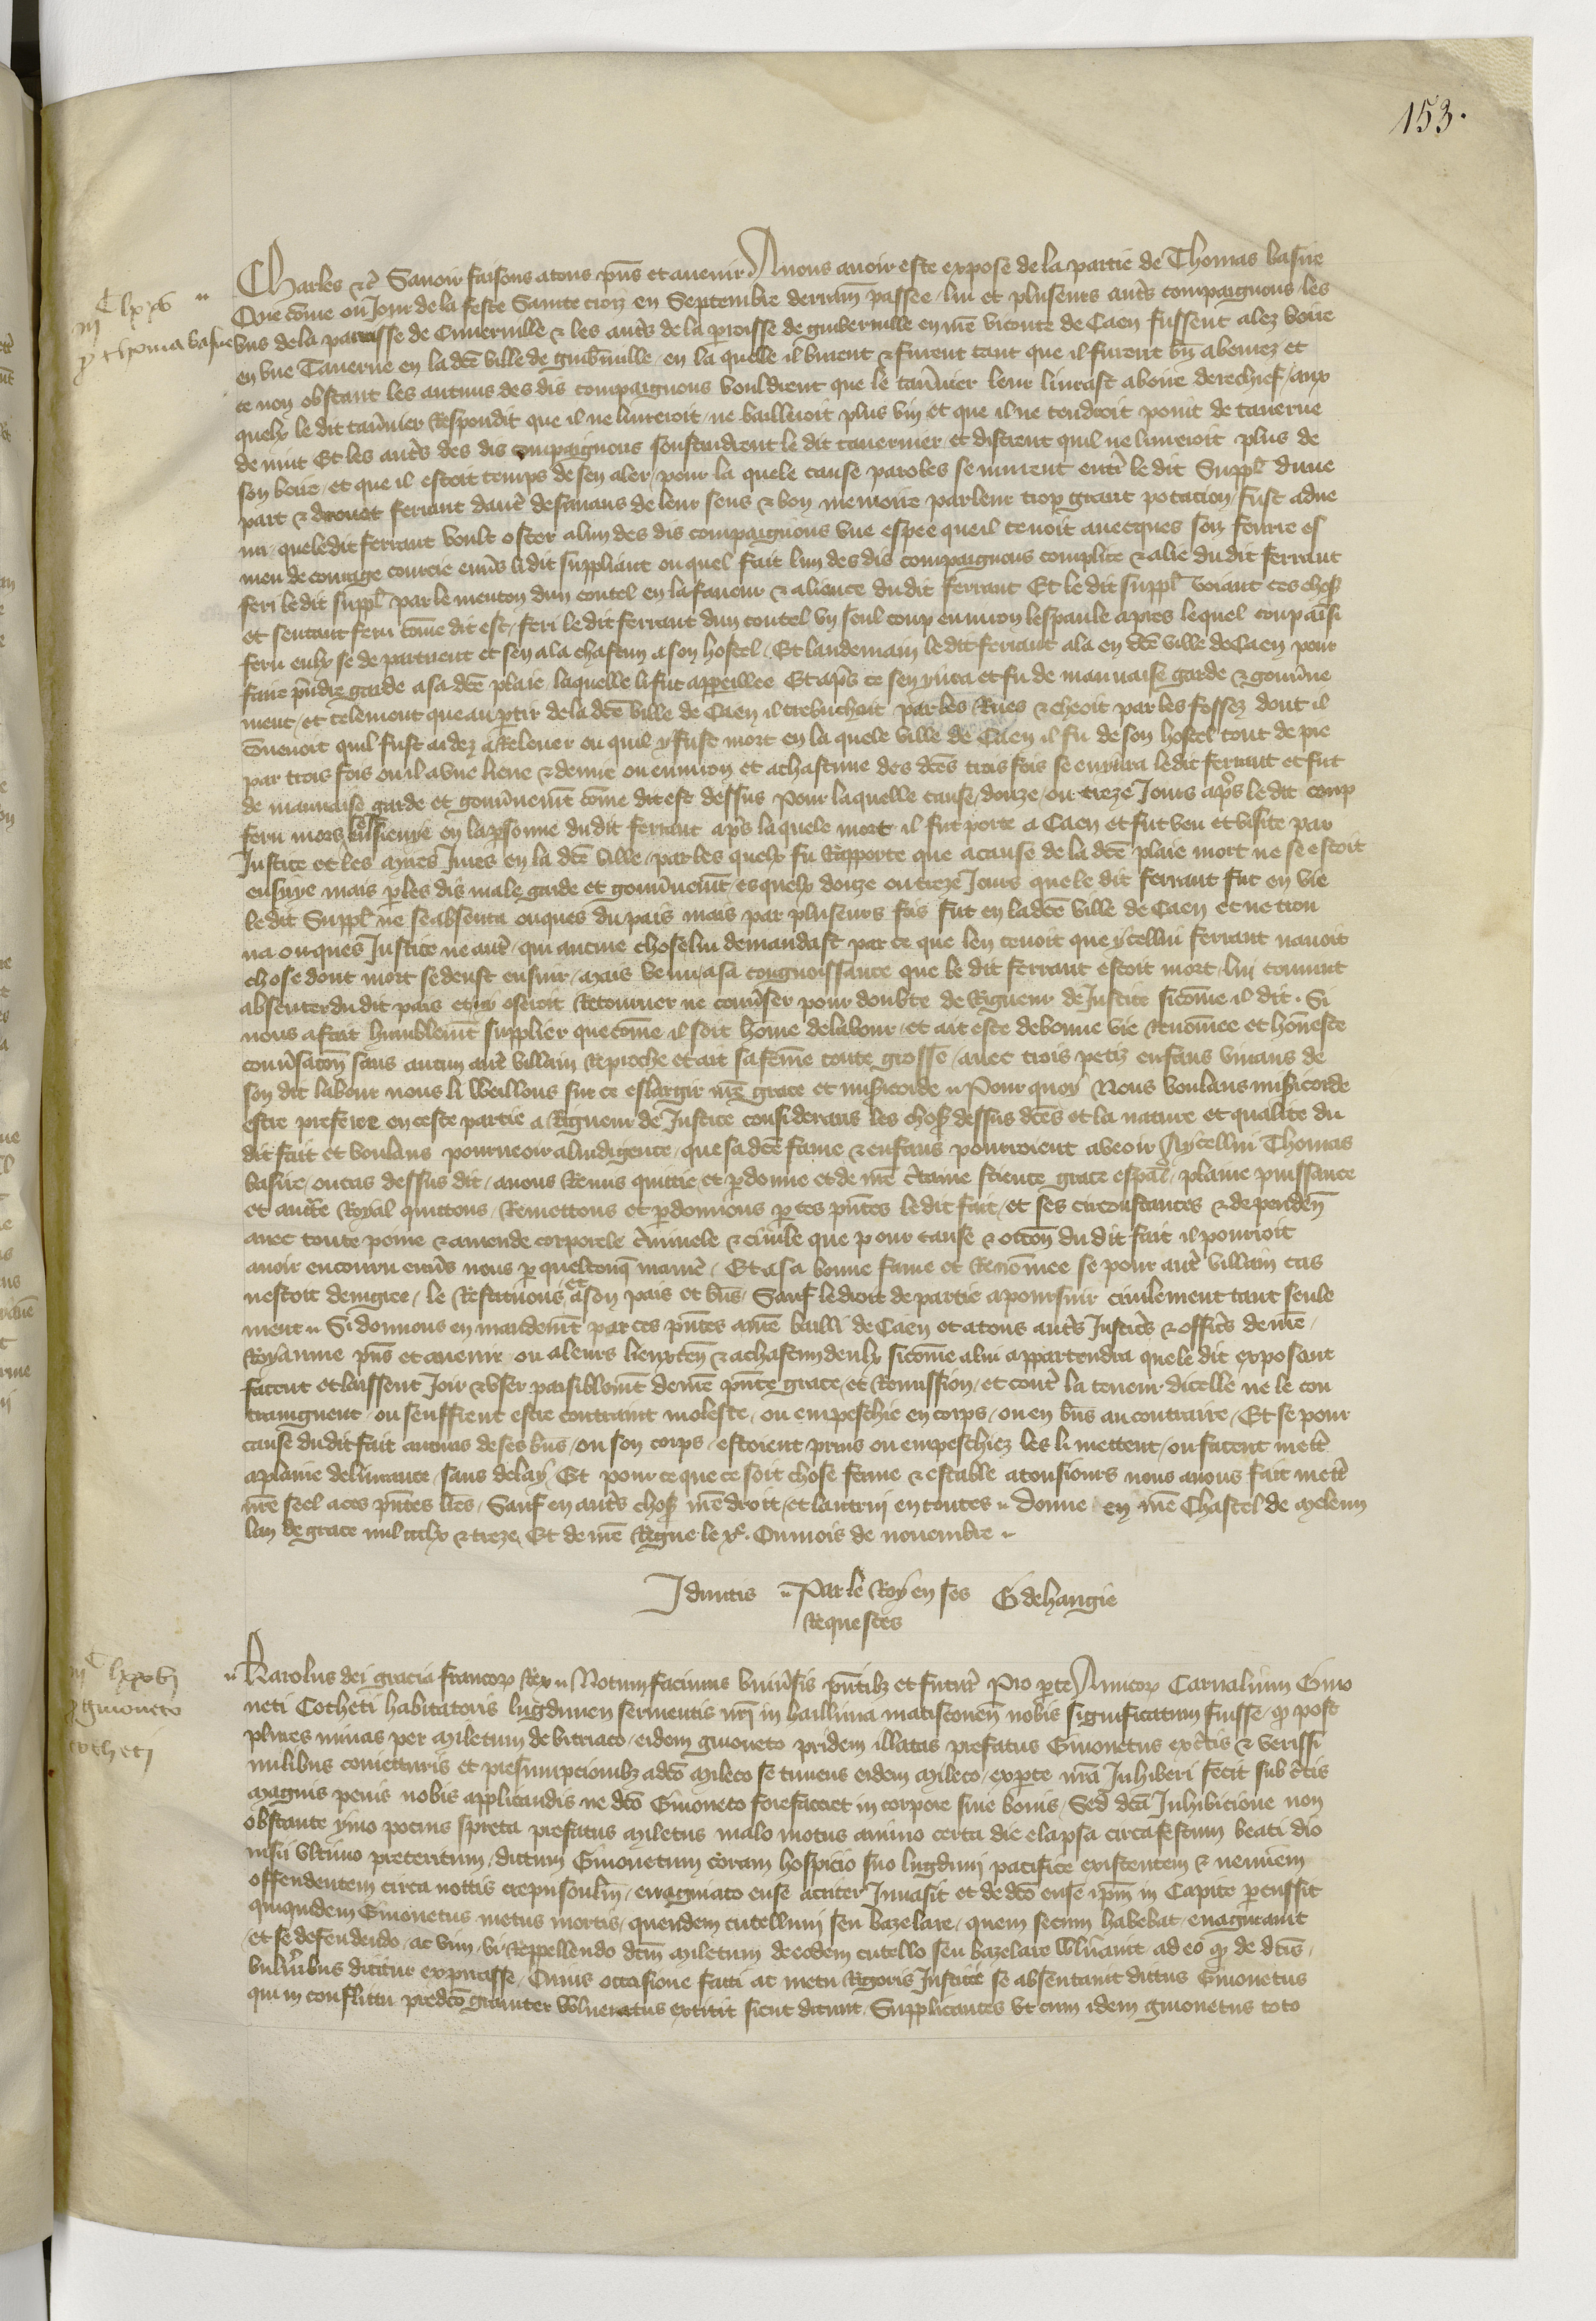 153.
Charles &c̃ Sauoir faisons a tous p̃ns et auenir A nous auoir este expose de la partie de Thomas basire
Que cõme ou Jour de la feste Sainte croiz en Septembre derrain passee / lui et pluseurs aut̃s compaignons / les
iijc lxxv
p̃ thoma basire
vns de la parroisse de Cuuerville & les aut̃s de la p̃oisse de guiberuille en nr̃e viconte de Caen fussent alez boire
en vne Tauerne en la dcẽ ville de guib̃uille / en la quelle il burent & furent tant que il furent bñ abeurez et
ce non obstant les aucuns des dis compaignons vouldrent que le tau̾nier leur liurast a boire derechief / aux
quelx le dit tau̾nier Respondit que il ne liureroit / ne bailleroit plus vin et que il ne tendroit point de tauerne
de nuit Et les aut̃s des dis compaignons soustindrent le dit tauernier et distrent quil ne liureroit plus de
son boire / et que il estoit temps de sen aler / pour la quele cause paroles se murent entr̃ le dit Suppl̃ dune
part & drouet ferrant daut̃ desmans de leur sens & bon memoire par leur trop grant potacion / fust adue
nu / que le dit ferrant voult oster a lun des dis compaignons vne espee que il tenoit auecques soy ferrir es
meu de courage courcie enũs le dit suppliant ou quel fait lun des dis compaignons complice & alie du dit ferrant
feri le dit suppl̃ par le menton dun coutel en la faueur & alience du dit ferrant Et le dit suppl̃ voiant ces chos̾
et sentant feru cõme dit est / feri le dit ferrant dun coutel vn seul coup enuiron lespaule apres lequel coup ainsi
feru eulx se departirent et sen ala chascun a son hostel / Et landemain le dit ferrant ala en dcẽ ville de Caen pour
faire p̃ndre garde a sa dcẽ plaie laquelle li fut appeillee Et ap̃s ce sen yura et fu de mauuaise garde & gouũne
ment / et telement que au p̃tir de la dcẽ ville de Caen il trebuchoit par les Rues & cheoit par les fossez dont il
cõuenoit quil fust aidez a Releuer ou quil y fust mort en la quele ville de Caen il fu de son hostel tout de pie
par trois fois ou il a vne lieue & demie ou enuiron et a chascune des dcẽs trois fois se enyura le dit ferrant et fut
de mauuaise garde et gouũnem̃t cõme dit est dessus Pour laquelle cause / douze / ou treze Jours ap̃s le dit coup
feru mors ensienvie en la p̃sonne du dit ferrant ap̃s la quele mort il fut porte a Caen et fut veu et visite par
Justice et les mires Jures en la dcẽ ville / par les quelx fu Rapporte que a cause de la dcẽ plaie mort ne se estoit
ensuye mais p̃ les dis male garde et gouũnem̃t / es quelx douze ou treze Jours que le dit ferrant fut en vie
le dit Suppl̃ ne se absenta onques du pais mais par pluseurs fois fut en la dcẽ ville de Caen et ne trou
ua onques Justice ne aut̃ / qui aucune chose lui demandast par ce que len tenoit que ycellui ferrant nauoit
chose dont mort se deust ensuir / mais venu a sa congnoissance que le dit ferrant estoit mort / lui conuint
absenter du dit pais et ny oseroit Retourner ne conũser pour doubte de Rigueur de Justice sicõme il dit . Si
nous a fait humblem̃t supplier que cõme il soit hõme de labour / et ait este de bonne vie Renõmee et hõneste
conũsatoñ sans aucun aut̃ villain Reproche et ait sa fẽme toute grosse / auec trois petiz enfans viuans de
son dit labour nous li Weillons sur ce eslargir nr̃e grace et mis̃icorde Pour quoy Nous voulans mis̃icorde
estre preferee en ceste partie a Rigueur de Justice considerans les chos̾ dessus dcẽs et la nature et qualite du
dit fait et voulans pourueoir a lindigence / que sa dcẽ fame & enfans pourroient aueoir A ycellui Thomas
basire / ou cas dessus dit / auons Remis quitie et p̃donne et de nr̃e c̃taine science grace esp̃al / plaine puissance
et auctẽ Royal quittons / Remettons et p̃donnons p̃ ces p̃ntes le dit fait / et ses circonstances & dependeñ
auec toute peine & amende corporele c̃minele & ciuile que pour cause & occoñ du dit fait il pourroit
auoir encouru enũs nous p̃ quelconq̃ manie̾ / Et a sa bonne fame et Renõmee se pour aut̃ villain cas
nestoit denigree / le Restituons et a son pais et bñs / Sauf le droit de partie a poursuir ciuilement tant seule
ment Si donnons en mandem̃t par ces p̃ntes a nr̃e bailli de Caen et a tous aut̃s Justic̃s & offic̃s de nr̃e
Royaume p̃ns et auenir ou a leurs lieuxteñ & a chascun deulx sicõme a lui appartendra que le dit exposant
facent et laissent Joir & vser paisiblem̃t de nr̃e p̃nte grace / et Remission / et contr̃ la teneur dicelle ne le con
traignent / ou seuffrent estre contraint moleste / ou empeschie en corps / ou en bñs au contraire / Et se pour
cause du dit fait aucuns de ses bñs / ou son corps / estoient prins ou empeschiez les li mettent / ou facent mett̃
a plaine deliurance / sans delay / Et pour ce que ce soit chose ferme & estable a tousiours nous auons fait mett̃
nr̃e seel a ces p̃ntes lr̃es / Sauf en aut̃s chos̾ nr̃e droit / et lautruy en toutes Donne en nr̃e Chastel de Meleun
lan de grace mil ccclx & treze / Et de nr̃e Regne le xe. Ou mois de nouembre
Iduntis Par le Roy en ses G de hangie
Requestes
iijc lxxvj
p̃ guioneto
cotheti
Karolus dei gracia francor̃ Rex Notum facimus vniũsis p̃ntib̾ et futur̃ Pro p̃te Amicor̃ Carnalium Guio
neti Cotheti habitatoris lugdunen̾ seruientis nr̃i in bailliuia matisconen̾ nobis significatum fuisse / q̃ post
plures minas per Miletum de vitriaco / eidem guioneto pridem illatas prefatus Guionetus ex c̃tis & verissi
milibus coniecturis et presumpcionib̾ a dc̃o Mileto se timens eidem Mileto / ex p̃te nr̃a Inhiberi fecit sub c̃tis
Magnis penis nobis applicandis ne dc̃o Guioneto forefaceret in corpore siue bonis / Sed dc̃a Inhibicione non
obstante ymo pocius spreta prefatus Miletus malo motus animo certa die elapsa circa festum beati dio
nisii vltimo preteritum / dictum Guionetum coram hospicio suo lugduni pacifice existentem & neminem
offendentem circa noctis crepusculũ / euaginato ense acriter Inuasit et de dc̃o ense ip̃m in Capite p̃cussit
quiquidem Guionetus metus mortis / quendem cutellum seu bazelare / quem secum habebat / euaginauit
et se defendendo / ac vim / vi Reppellendo dc̃m Miletum de eodem cutello seu bazelare vulnãuit ad eo q̃ de dc̃is
vulnãibus dicitur expirasse / Cuius occasione facti ac metu Rigoris Justicie se absentauit dictus Guionetus
qui in conflictu predc̃o grauiter vulneratus extitit sicut dicunt . Supplicantes vt cum idem guionetus toto